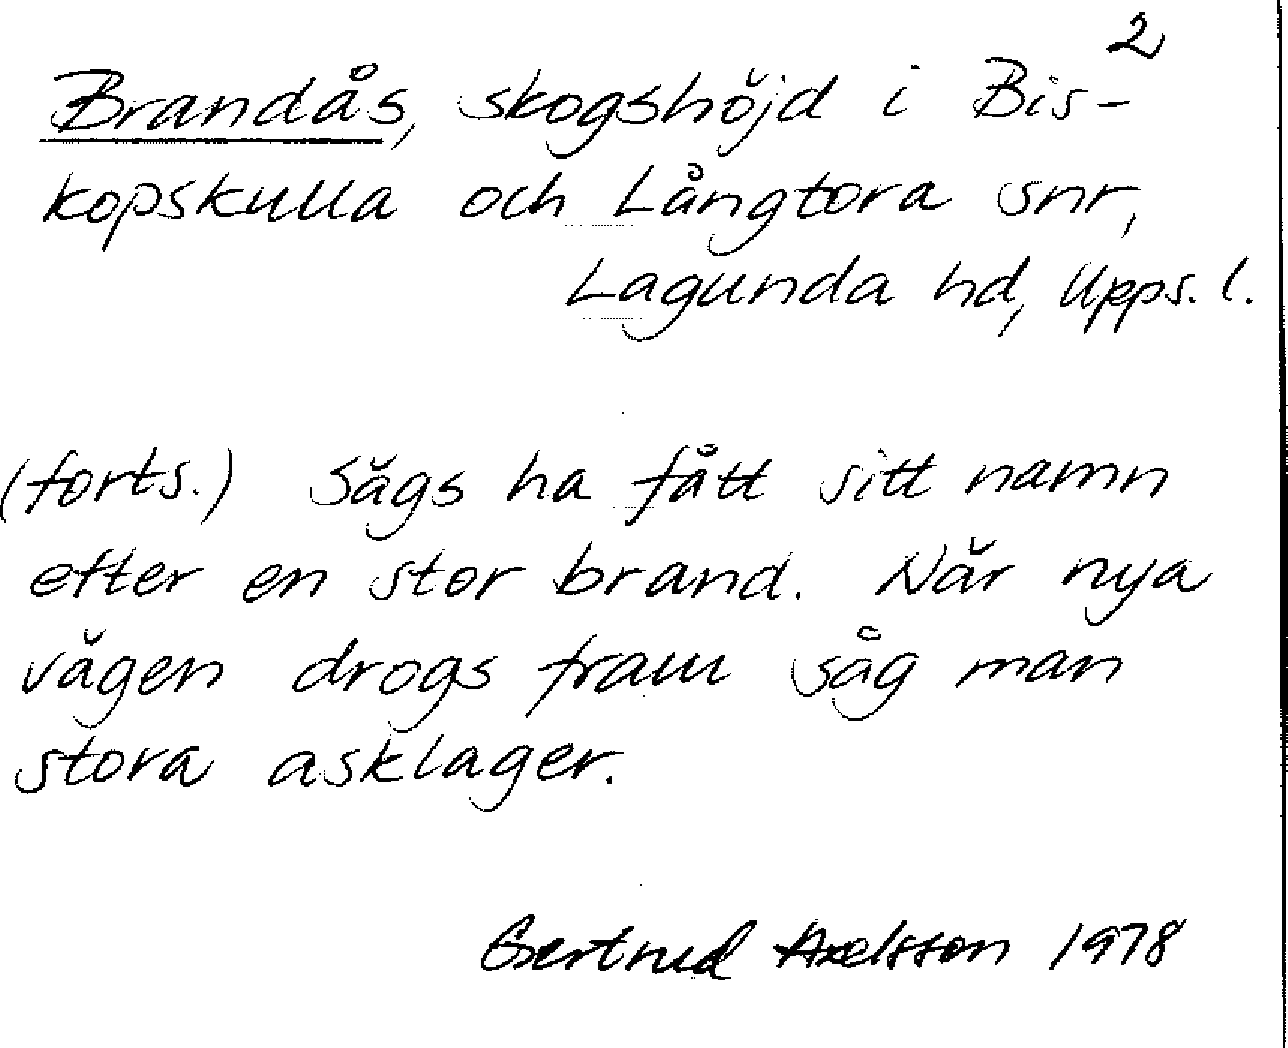 2
Brandås, skogshöjd i Bis-
kopskulla och Långtora snr,
Lagunda hd, Upps. l.
(forts.) Sägs ha fått sitt namn
efter en stor brand. När nya
vägen drogs fram såg man
stora asklager.
Gertrud Axelsson 1978